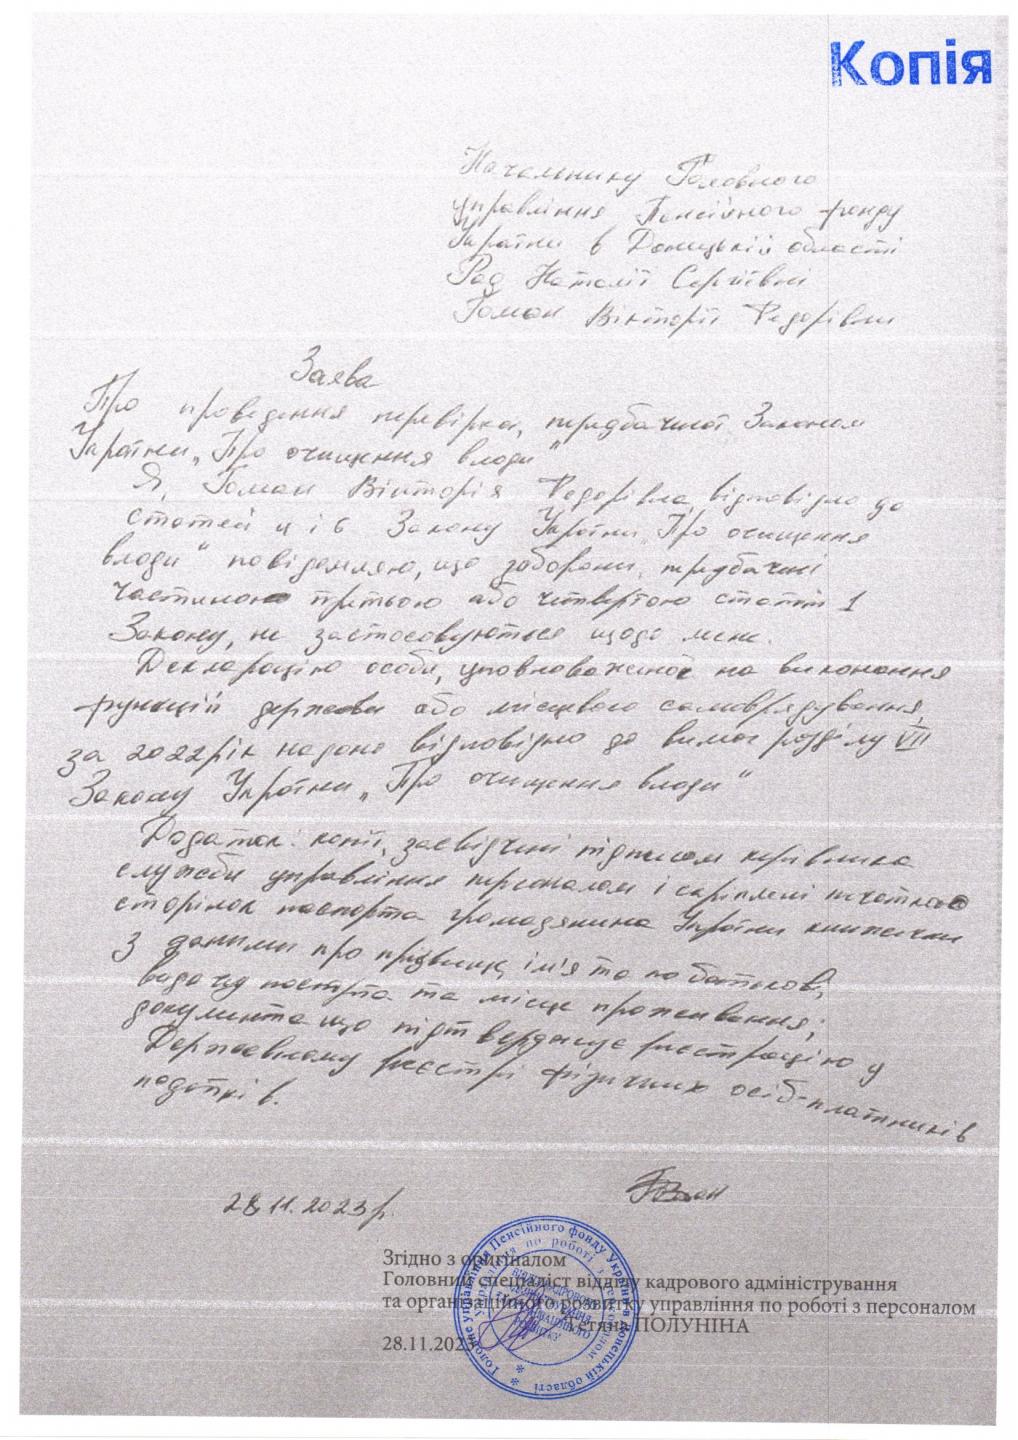 Копія
Начальнику Головного
управління Пенсійного фонду
України в Донецькій області
Рад Наталії Сергіївні
Гоман Вікторії Федорівни
Заява
Про проведення перевірки, передбаченої Законом
України „Про очищення влади"
Я, Гоман Вікторія Федорівна, відповідно до
статей 4 і 6 Закону України „Про очищення
влади" повідомляю, що заборони, передбачені
частиною третьою або четвертою статті 1
Закону, не застосовуються щодо мене.
Декларацію особи, уповноваженої на виконання
функцій держави або місцевого самоврядування,
за 2022 рік надано відповідно до вимог розділу VII
Закону України „Про очищення влади"
Додаток: копії, засвідчені підписом керівника
служби управління персоналом і скріплені печаткою
сторінок паспорта громадянина України книжечки
з даними про прізвище, ім'я та по батькові,
видачу паспорта та місце проживання;
документа що підтверджує реєстрацію у
Державному реєстрі фізичних осіб-платників
податків.
28.11.2023р.
Згідно з оригіналом
Головний спеціаліст відділу кадрового адміністрування
та організаційного розвитку управління по роботі з персоналом
Тетяна ПОЛУНІНА
28.11.2023
Головне управління Пенсійного фонду України в Донецькій області
управління по роботі з персоналом
ВІДДІЛ КАДРОВОГО
АДМІНІСТРУВАННЯ
ТА ОРГАНІЗАЦІЙНОГО
РОЗВИТКУ